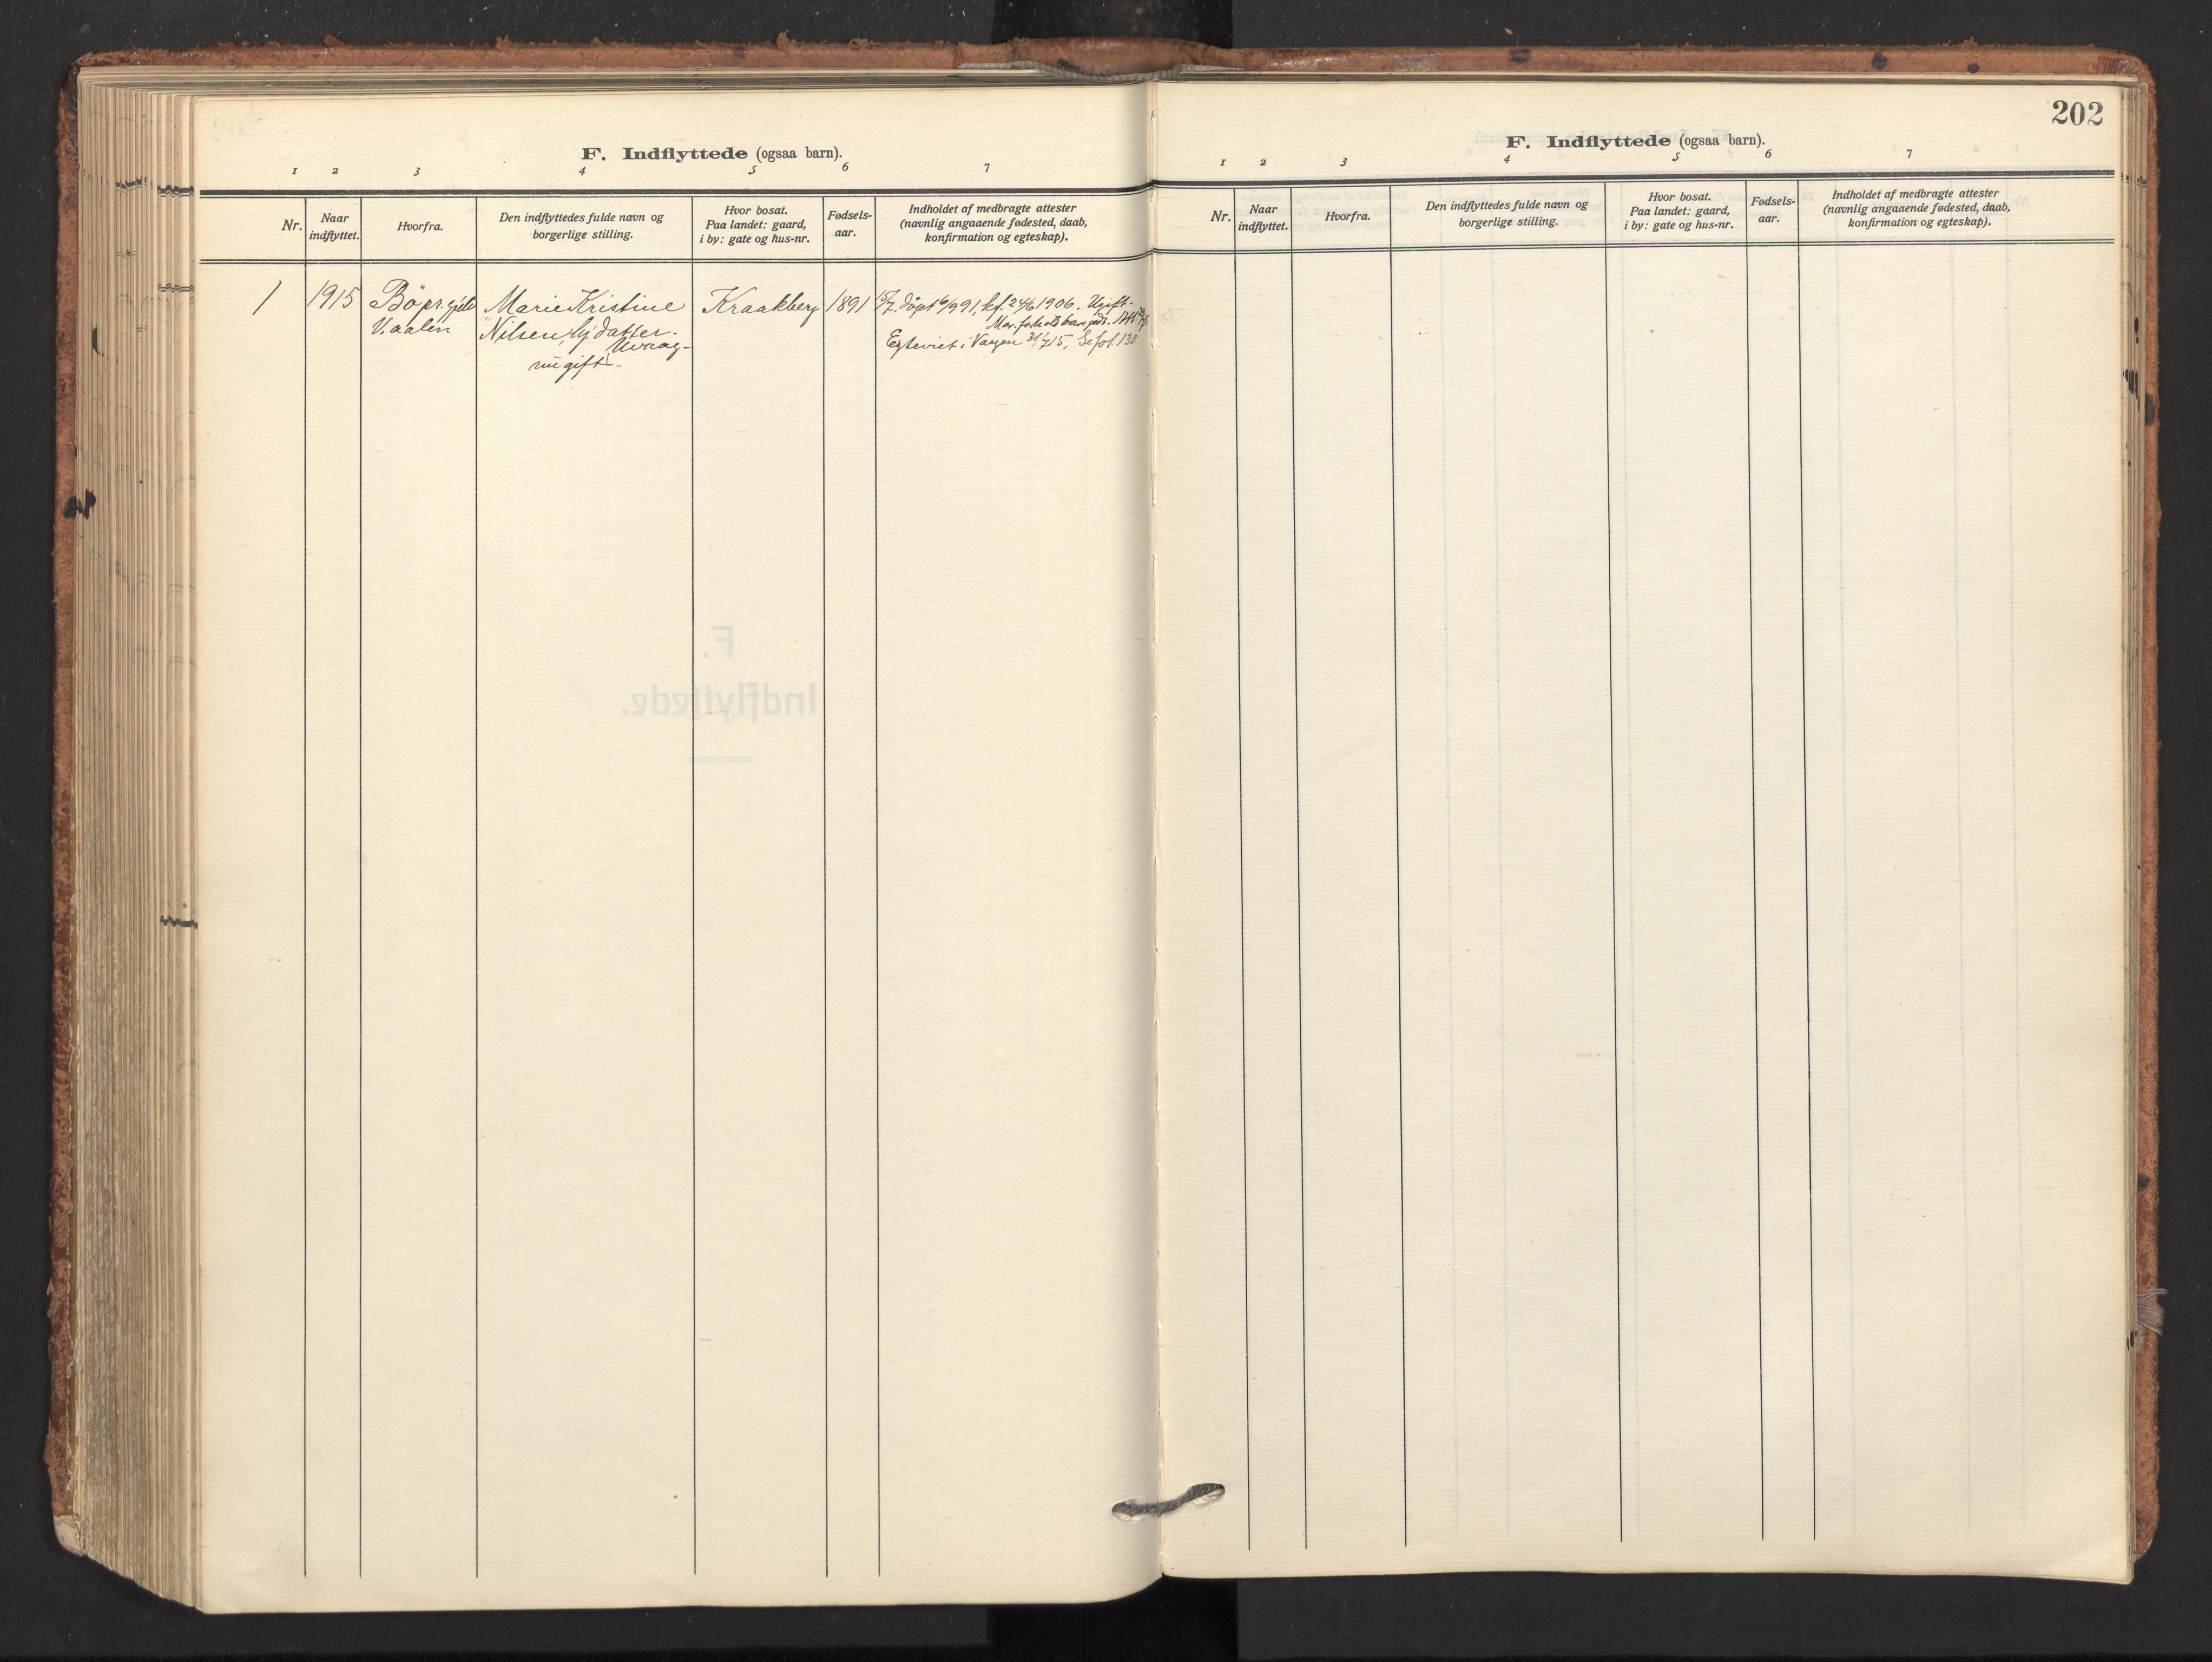 F. Indflyttede (ogsaa barn).
1 2 3 4 5 6 7
Nr. Naar indflyttet. Hvorfra. Den indflyttedes fulde navn og borgerlige stilling. Hvor bosat. Paa landet: gaard, i by: gate og hus-nr. Fødsels-aar. Indholdet af medbragte attester (navnlig angaaende fødested, daab, konfirmation og egteskap).
1 1915 Bö pr.gjeld Marie Kristine Kraakberg 1891 døpt 6/9 91, kf. 24/6 1906. Ugift.
V.aalen Nilsen,
ugift.
Egteviet i 31/7 15, Se fol. 130
202
F. Indflyttede (ogsaa barn).
1 2 3 4 5 6 7
Nr. Naar indflyttet. Hvorfra. Den indflyttedes fulde navn og borgerlige stilling. Hvor bosat. Paa landet: gaard, i by: gate og hus-nr. Fødsels-aar. Indholdet af medbragte attester (navnlig angaaende fødested, daab, konfirmation og egteskap).